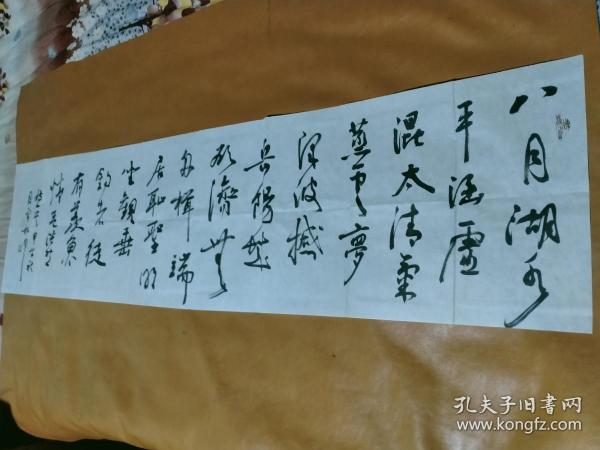 八月湖水
平涵虚
混太清气
蒸云梦
泽波撼
岳阳城
欲济无
舟楫端
居耻圣明
坐观垂
钓者徒
有羡鱼
孔夫子旧书网
www.kongfz.com